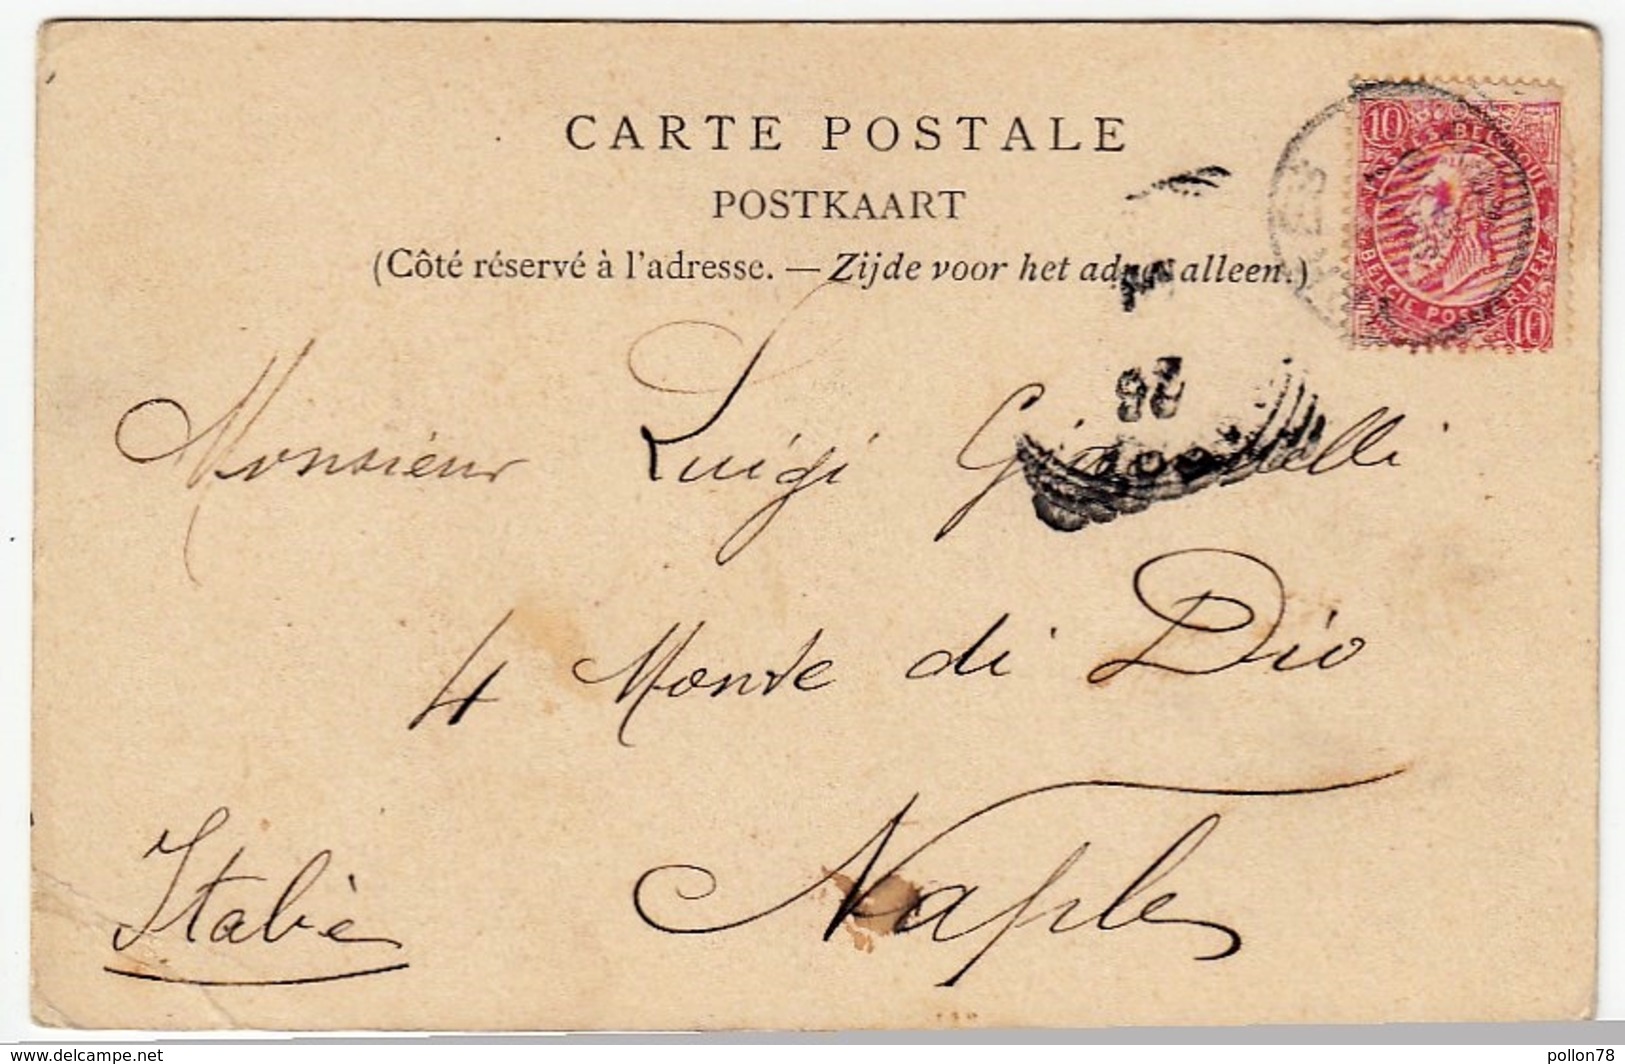 CARTE POSTALE
POSTKAART
(Côté réservé à l'adresse. — Zijde voor het alleen.)
10
BELGIQUE
BELGIE POSTERIJEN
10
26
Monsieur Luigi
4 Monte di Dio
Naples
Italie
delcampe.net
pollon78